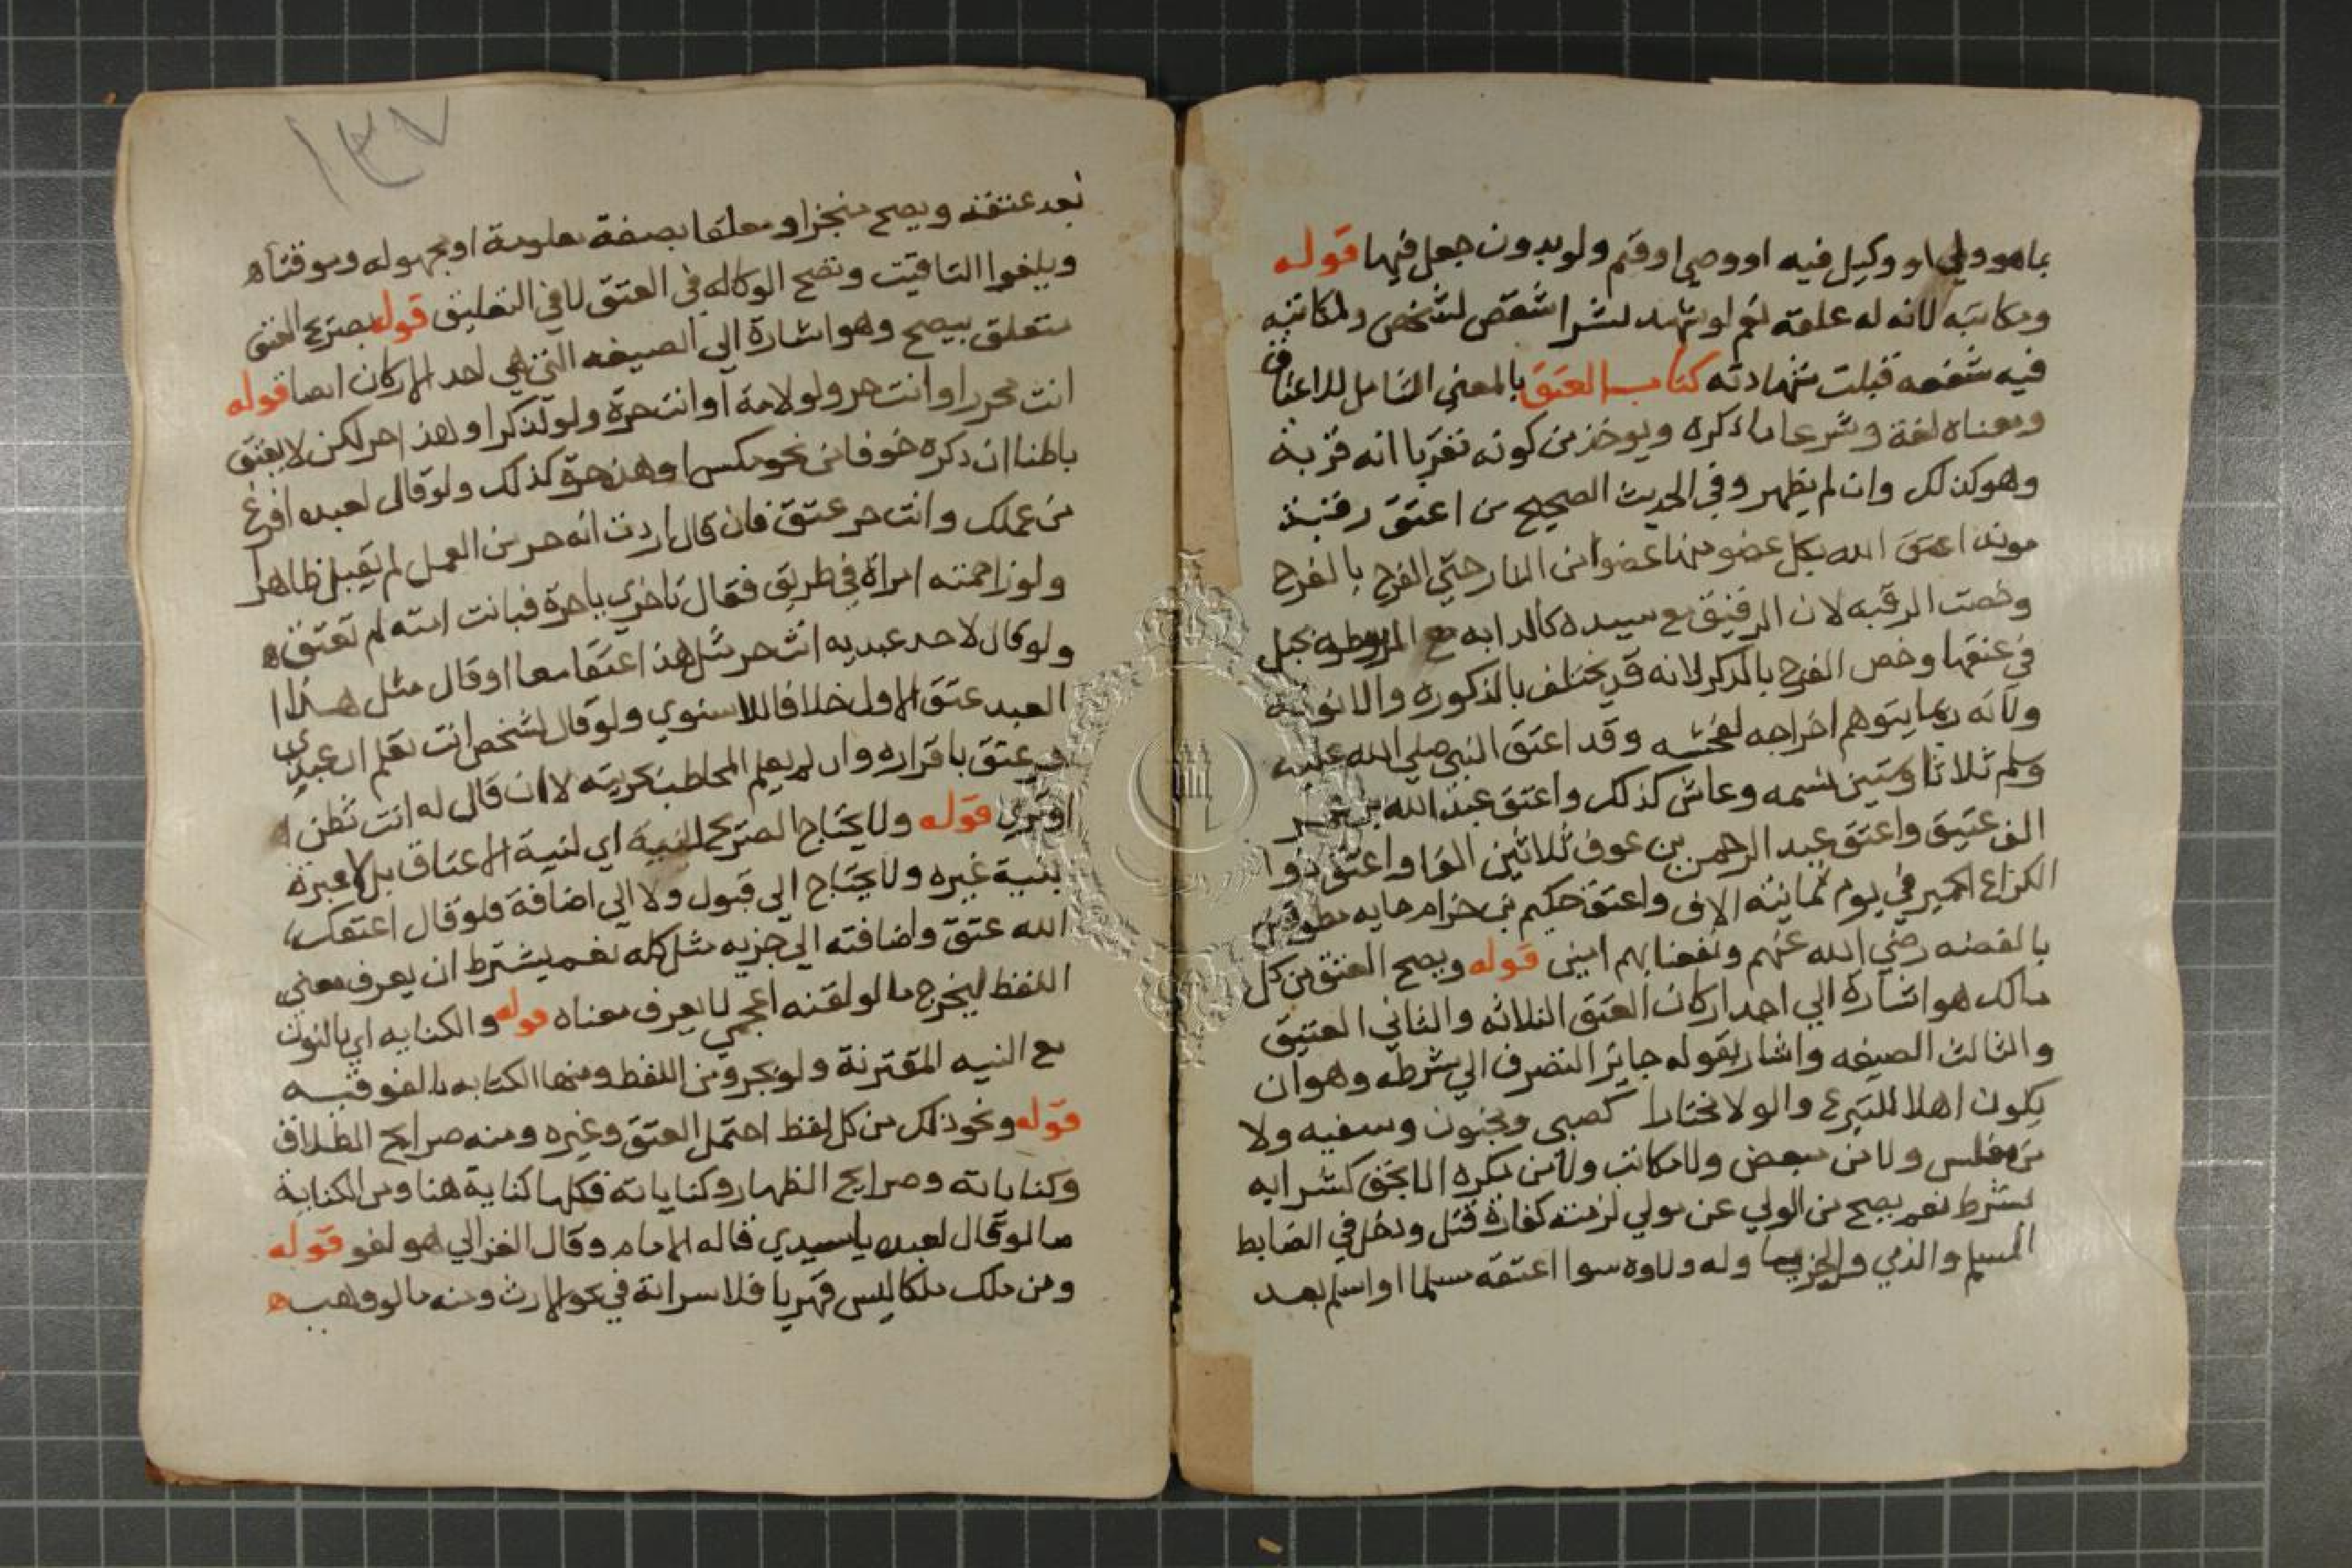 بما هو ولي او وكيل فيه او وصي او قيم ولو بدون جعل فيها قوله
ومكاتبه لانه له علقة نعم لو شهد لشرا شقص لشخص ولمكاتبه
فيه شفعه قبلت شهادته كتاب العتق بالمعني الشامل للاعتاق
ومعناه لغة وشرعا ما ذكره ويوخذ من كونه تقربا انه قربة
وهو كذلك وان لم يظهر وفي الحديث الصحيح من اعتق رقبة
مومنه اعتق الله بكل عضو منها عضوا من النار حتي الفرج بالفرج
وخصت الرقبه لان الرقيق مع سيده كالدابه مع المربوطه بحبل
في عنقها وخص الفرج بالذكر لانه قد يختلف بالذكوره والانوثه
ولانه ربما يتوهم اخراجه لفحشه وقد اعتق النبي صلي الله عليه
وسلم ثلاثا وستين نسمه وعاش كذلك واعتق عبد الله بن عمر
الف عتيق واعتق عبد الرحمن بن عوف ثلاثين الفا واعتق ذوا
الكراع الحميري في يوم ثمانية الاف واعتق حكيم بن حزام مايه مطوقين
بالفضه رضي الله عنهم ونفعنا بهم امين قوله ويصح العتق من كل
مالك هو اشارة الي احد اركان العتق الثلاثه والثاني العتيق
والثالث الصيغه واشار بقوله جايز التصرف الي شرطه وهو ان
يكون اهلا للتبرع والولا مختارا كصبي ومجنون وسفيه ولا
من مفلس ولا من مبعض ولا مكاتب ولا من مكره الا بحق كشرايه
بشرط نعم يصح من الولي عن مولي لزمته كفارة قتل ودخل في الضابط
المسلم والذمي والحربي وله ولاوه سوا اعتقه مسلما او اسلم بعد
١٣٧
بعد عتقه ويصح منجزا ومعلقا بصفة معلومة او مجهوله وموقتا
ويلغوا التاقيت وتصح الوكاله في العتق لا في التعليق قوله بصريح العتق
متعلق بيصح وهو اشارة الي الصيغه التي هي احد الاركان ايضا قوله
انت محرر او انت حر ولو لامة او انت حرة ولو لذكر او هذا حر لكن لا يعتق
باطنا ان ذكره خوفا من نحو مكس او هذه حرة كذلك ولو قال لعبده افرغ
من عملك وانت حر عتق فان قال اردت انه حر من العمل لم يقبل ظاهرا
ولو زاحمته امراة في طريق فقال تاخري يا حرة فبانت امته لم تعتق
ولو قال لاحد عبديه انت حر مثل هذا عتقا معا او قال مثل هذا
العبد عتق الاول خلافا للاسنوي ولو قال لشخص انت تعلم ان عبدي
حر عتق باقراره وان لم يعلم المخاطب بحريته لا ان قال له انت تظن
او تري قوله ولا يحتاج الصريح للنية اي لنية الاعتاق بل لا عبرة
بنية غيره ولا يحتاج الي قبول ولا الي اضافة فلو قال اعتقك
الله عتق واضافته الي جزيه مثل كله نعم يشترط ان يعرف معني
اللفظ ليخرج ما لو لقنه اعجمي لا يعرف معناه قوله والكنايه اي بالنون
مع النيه المقترنة ولو بجزو من اللفظ ومنها الكتابه بالفوقيه
قوله ونحو ذلك من كل لفظ احتمل العتق وغيره ومنه صرايح الطلاق
وكناياته وصرايح الظهار وكناياته فكلها كناية هنا ومن الكناية
ما لو قال لعبده يا سيدي قاله الامام وقال الغزالي هو لغو قوله
ومن ملك ملكا ليس قهريا فلا سراية في نحو الارث ومنه ما لو وهب